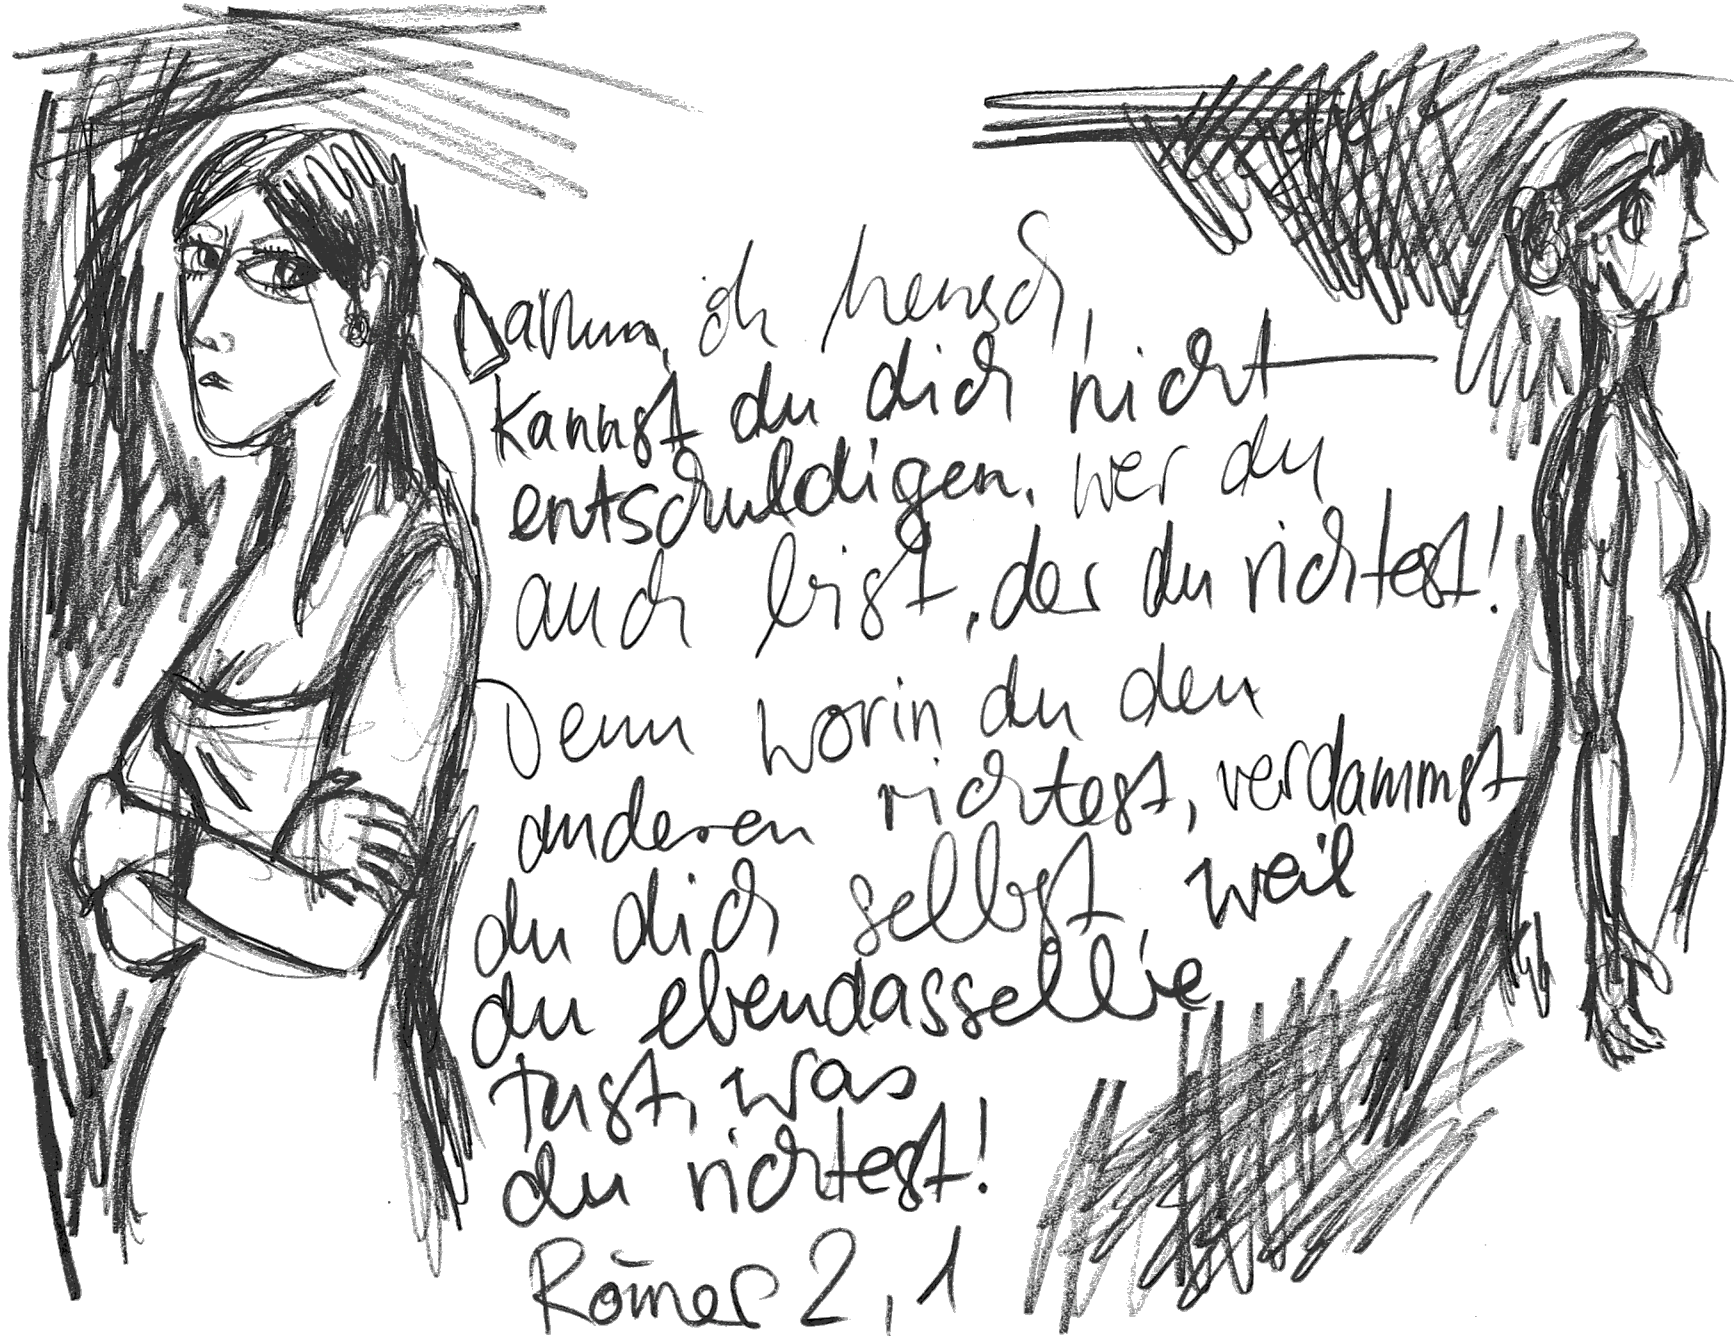 Darum, oh Mensch,
kannst du dich nicht
entschuldigen. Wer du
auch bist, der du richtest!
Denn worin du den
anderen richtest, verdammst
du dich selbst, weil
du ebendasselbe
tust, was
du richtest!
Römer 2,1